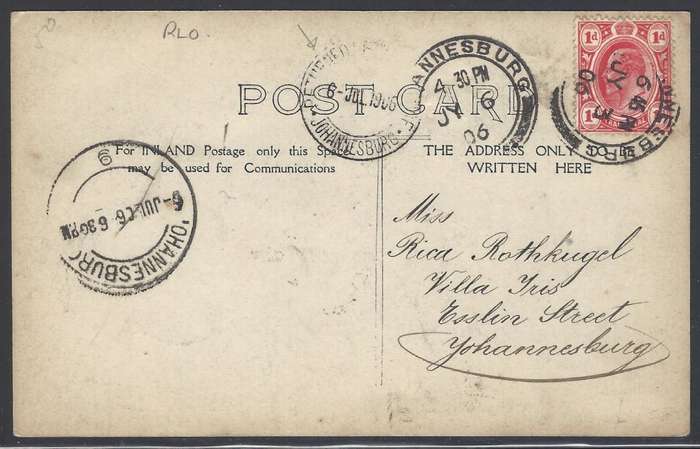 RLO.
1d 1d
RETURNED LETTER
6-JUL 1906
JOHANNESBURG
JOHANNESBURG
4 30 PM
JY 6
06
JOHANNESBURG
JY 6
06
POST CARD
For INLAND Postage only this Space
may be used for Communications
THE ADDRESS ONLY TO BE
WRITTEN HERE
6
6-JUL 06 6 30 PM
JOHANNESBURG
Miss
Rica Rothkugel
Villa Iris
Esslin Street
Yohannesburg